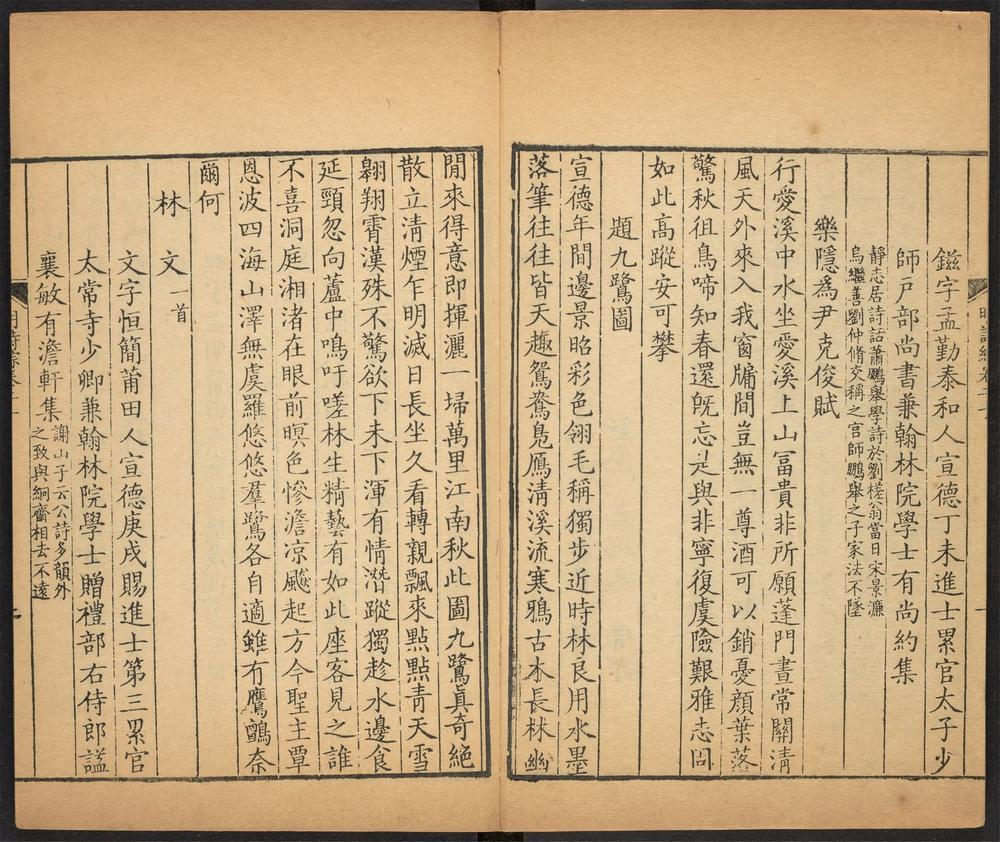 鎡字孟勤泰和人宣德丁未進士累官太子少
師戶部尚書兼翰林院學士有尚約集
靜志居詩話蕭鵬舉學詩於劉槎翁當日宋景濂
烏繼善劉仲脩交稱之宫師鵬舉之子家法不墜
樂隱為尹克俊賦
行愛溪中水坐愛溪上山富貴非所願蓬門晝常關淸
風天外來入我窗牖間豈無一尊酒可以銷憂顏葉落
驚秋徂鳥啼知春還旣忘是與非寧復虞險艱雅志固
如此高蹤安可攀
題九鷺圖
宣德年間邊景昭彩色翎毛稱獨步近時林良用水墨
落筆往往皆天趣鴛鴦鳧鴈淸溪流寒鴉古木長林幽
閒來得意即揮灑一埽萬里江南秋此圖九鷺眞奇絕
散立淸煙乍明滅日長坐久看轉親飄來點點靑天雪
翱翔霄漢殊不驚欲下未下渾有情潛蹤獨趁水邊食
延頸忽向蘆中鳴吁嗟林生精藝有如此座客見之誰
不喜洞庭湘渚在眼前暝色慘澹凉颷起方今聖主覃
恩波四海山澤無虞羅悠悠羣鷺各自適雖有鷹鸇奈
爾何
林文一首
文字恒簡莆田人宣德庚戌賜進士第三累官
太常寺少卿兼翰林院學士贈禮部右侍郎謚
襄敏有澹軒集
謝山子云公詩多韻外
之致與絅齋相去不遠